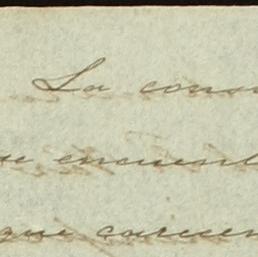 La cons
se encuent
que carecen